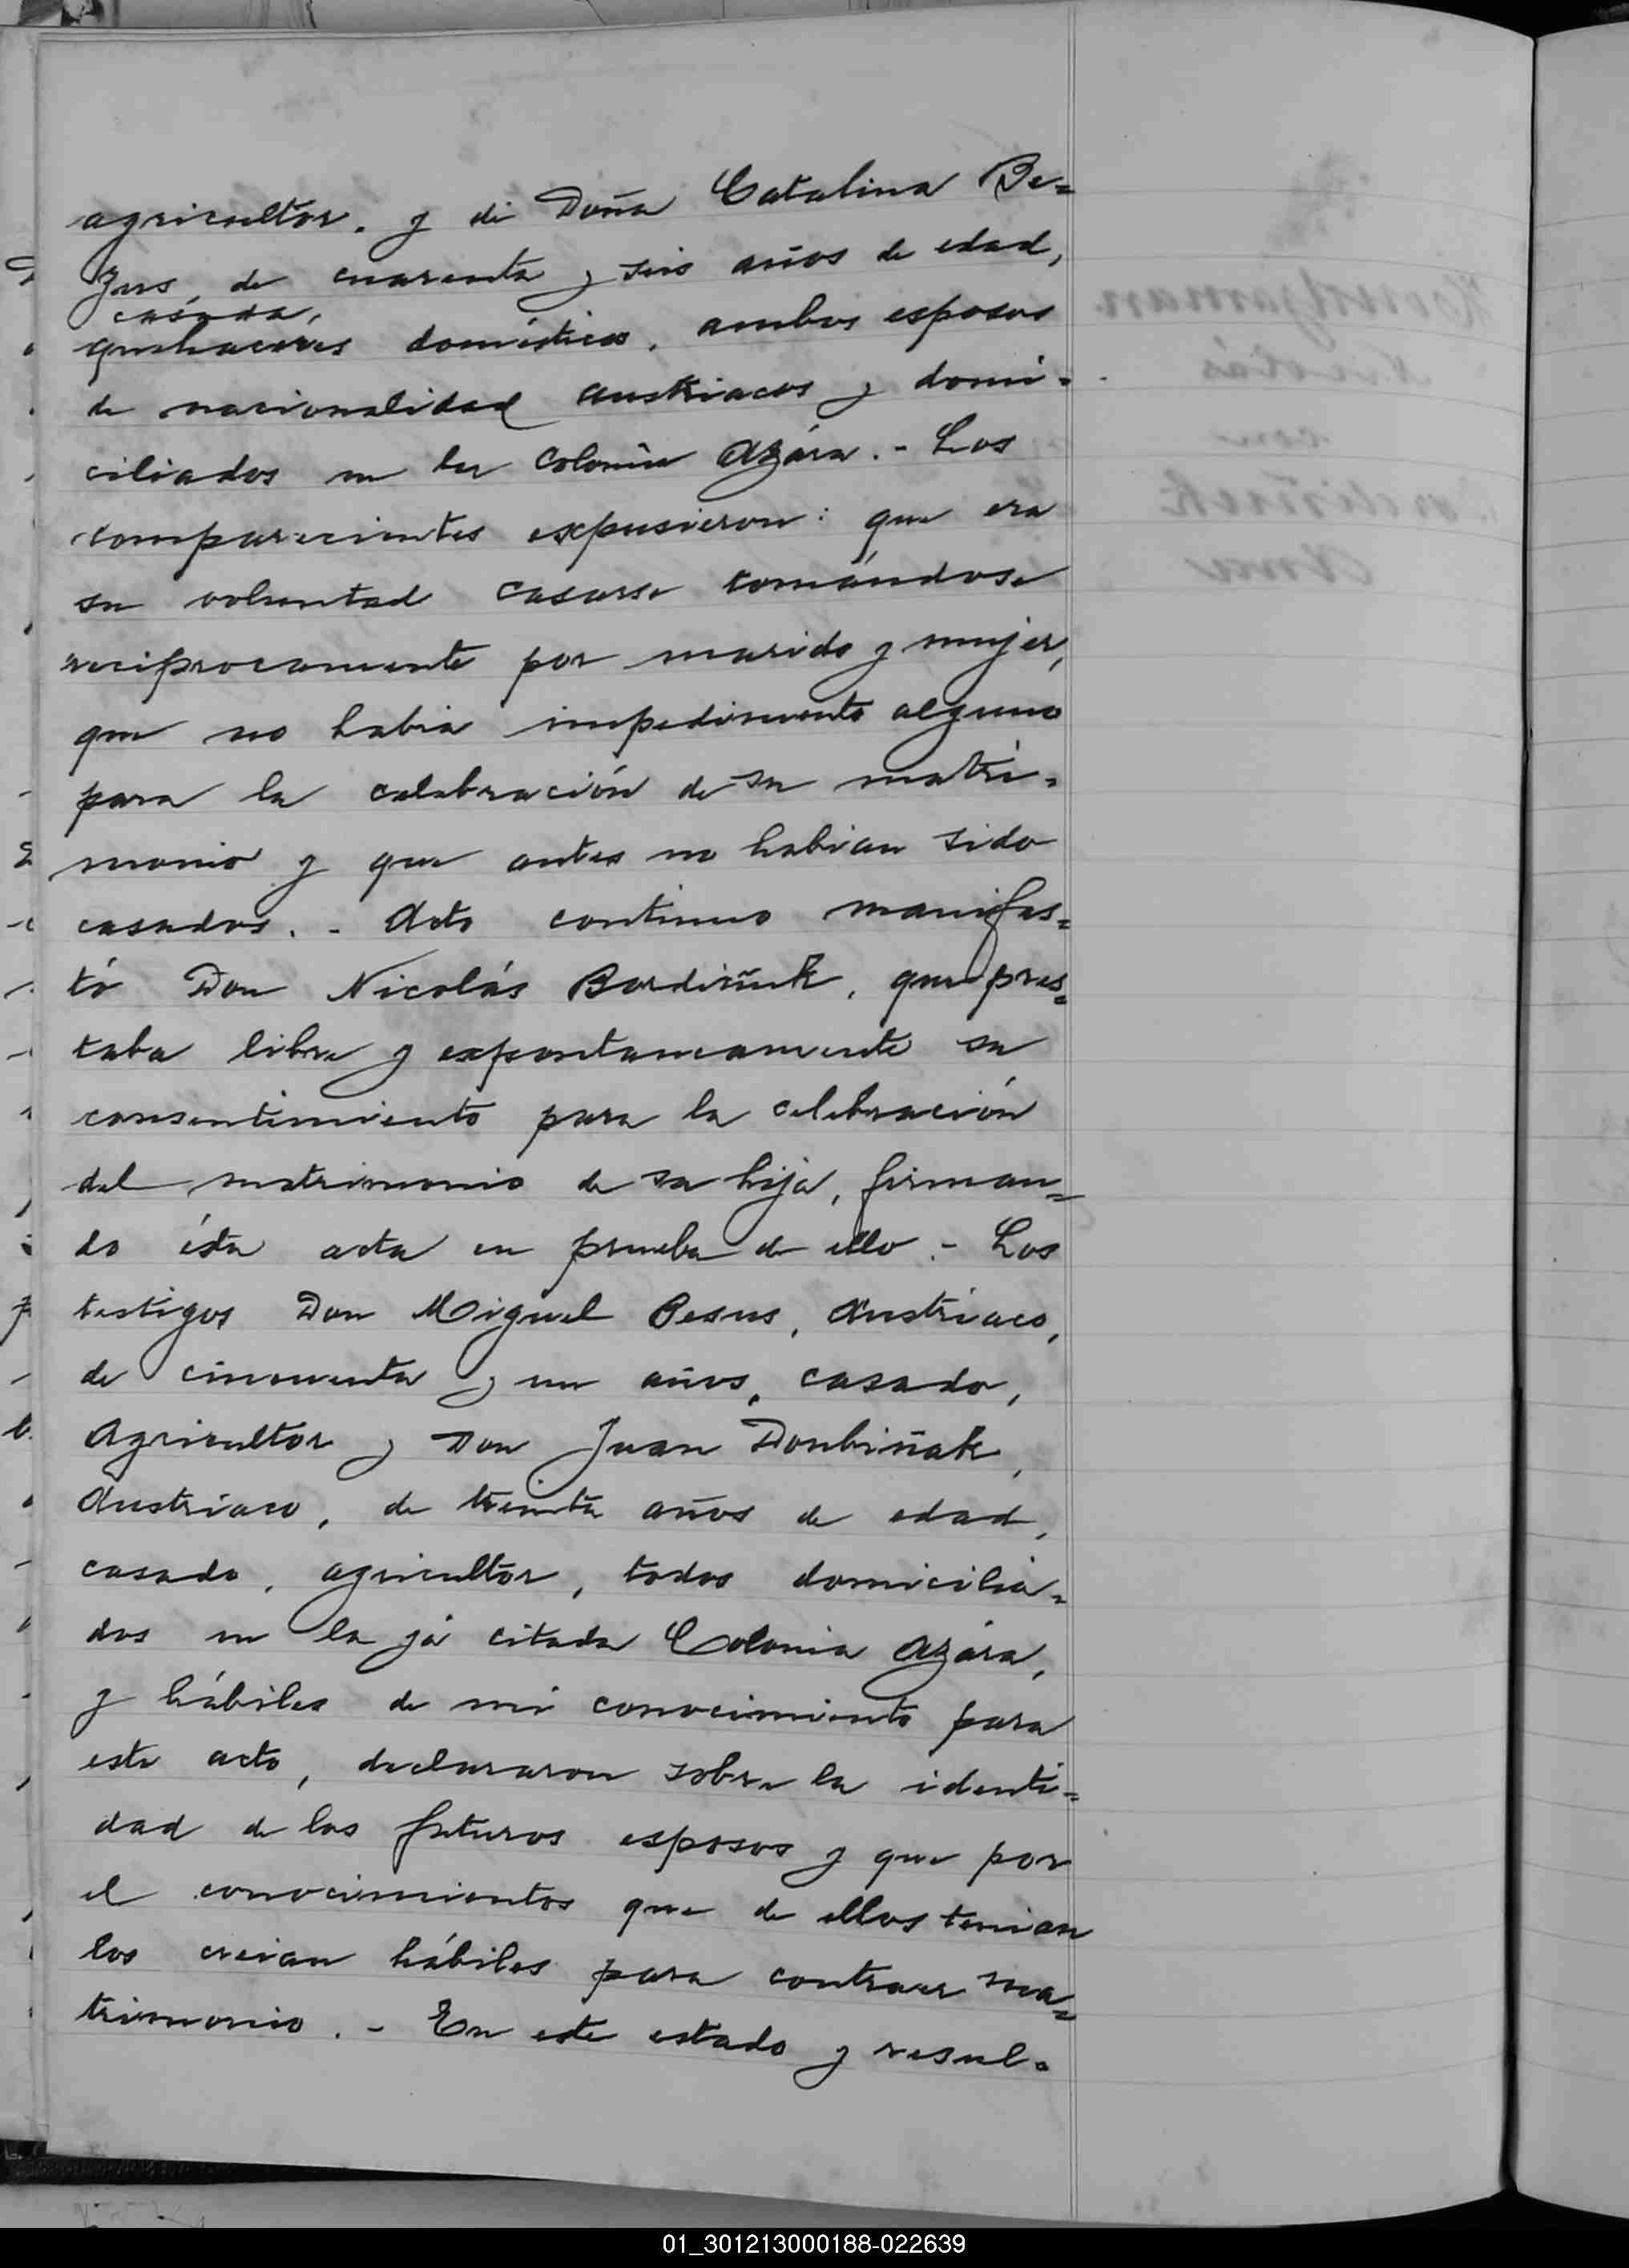 agricultor, y di Doña Catalina Be=
zus, de cuarenta y seis años de edad,
casada,
quehaceres domésticos, ambos esposos
de nacionalidad austriacos y domi=
ciliados en la Colonia Azára.- Los
comparecientes expusieron: que era
su voluntad casarse tomándose
reciprocamente por marido y mujer,
que no habia impedimento alguno
para la celebración de su matri=
monio y que antes no habian sido
casados.- Acto continuo manifes=
tó Don Nicolás Bordiñuk, que pres=
taba libre y expontaneamente su
consentimiento para la celebración
del matrimonio de su hija, firman=
do ésta acta en prueba de ello.- Los
testigos Don Miguel Besus, Austriaco,
de cincuenta y un años, casado,
Agricultor y Don Juan Donbiñak,
Austriaco, de treinta años de edad,
casado, agricultor, todos domicilia=
dos en la já citada Colonia Azára,
y hábiles de mi conocimiento para
este acto, declararon sobre la identi=
dad de los futuros esposos y que por
el conocimientos que de ellos tenian
los creian hábiles para contraer ma=
trimonio.- En este estado y resul=
01_301213000188-022639